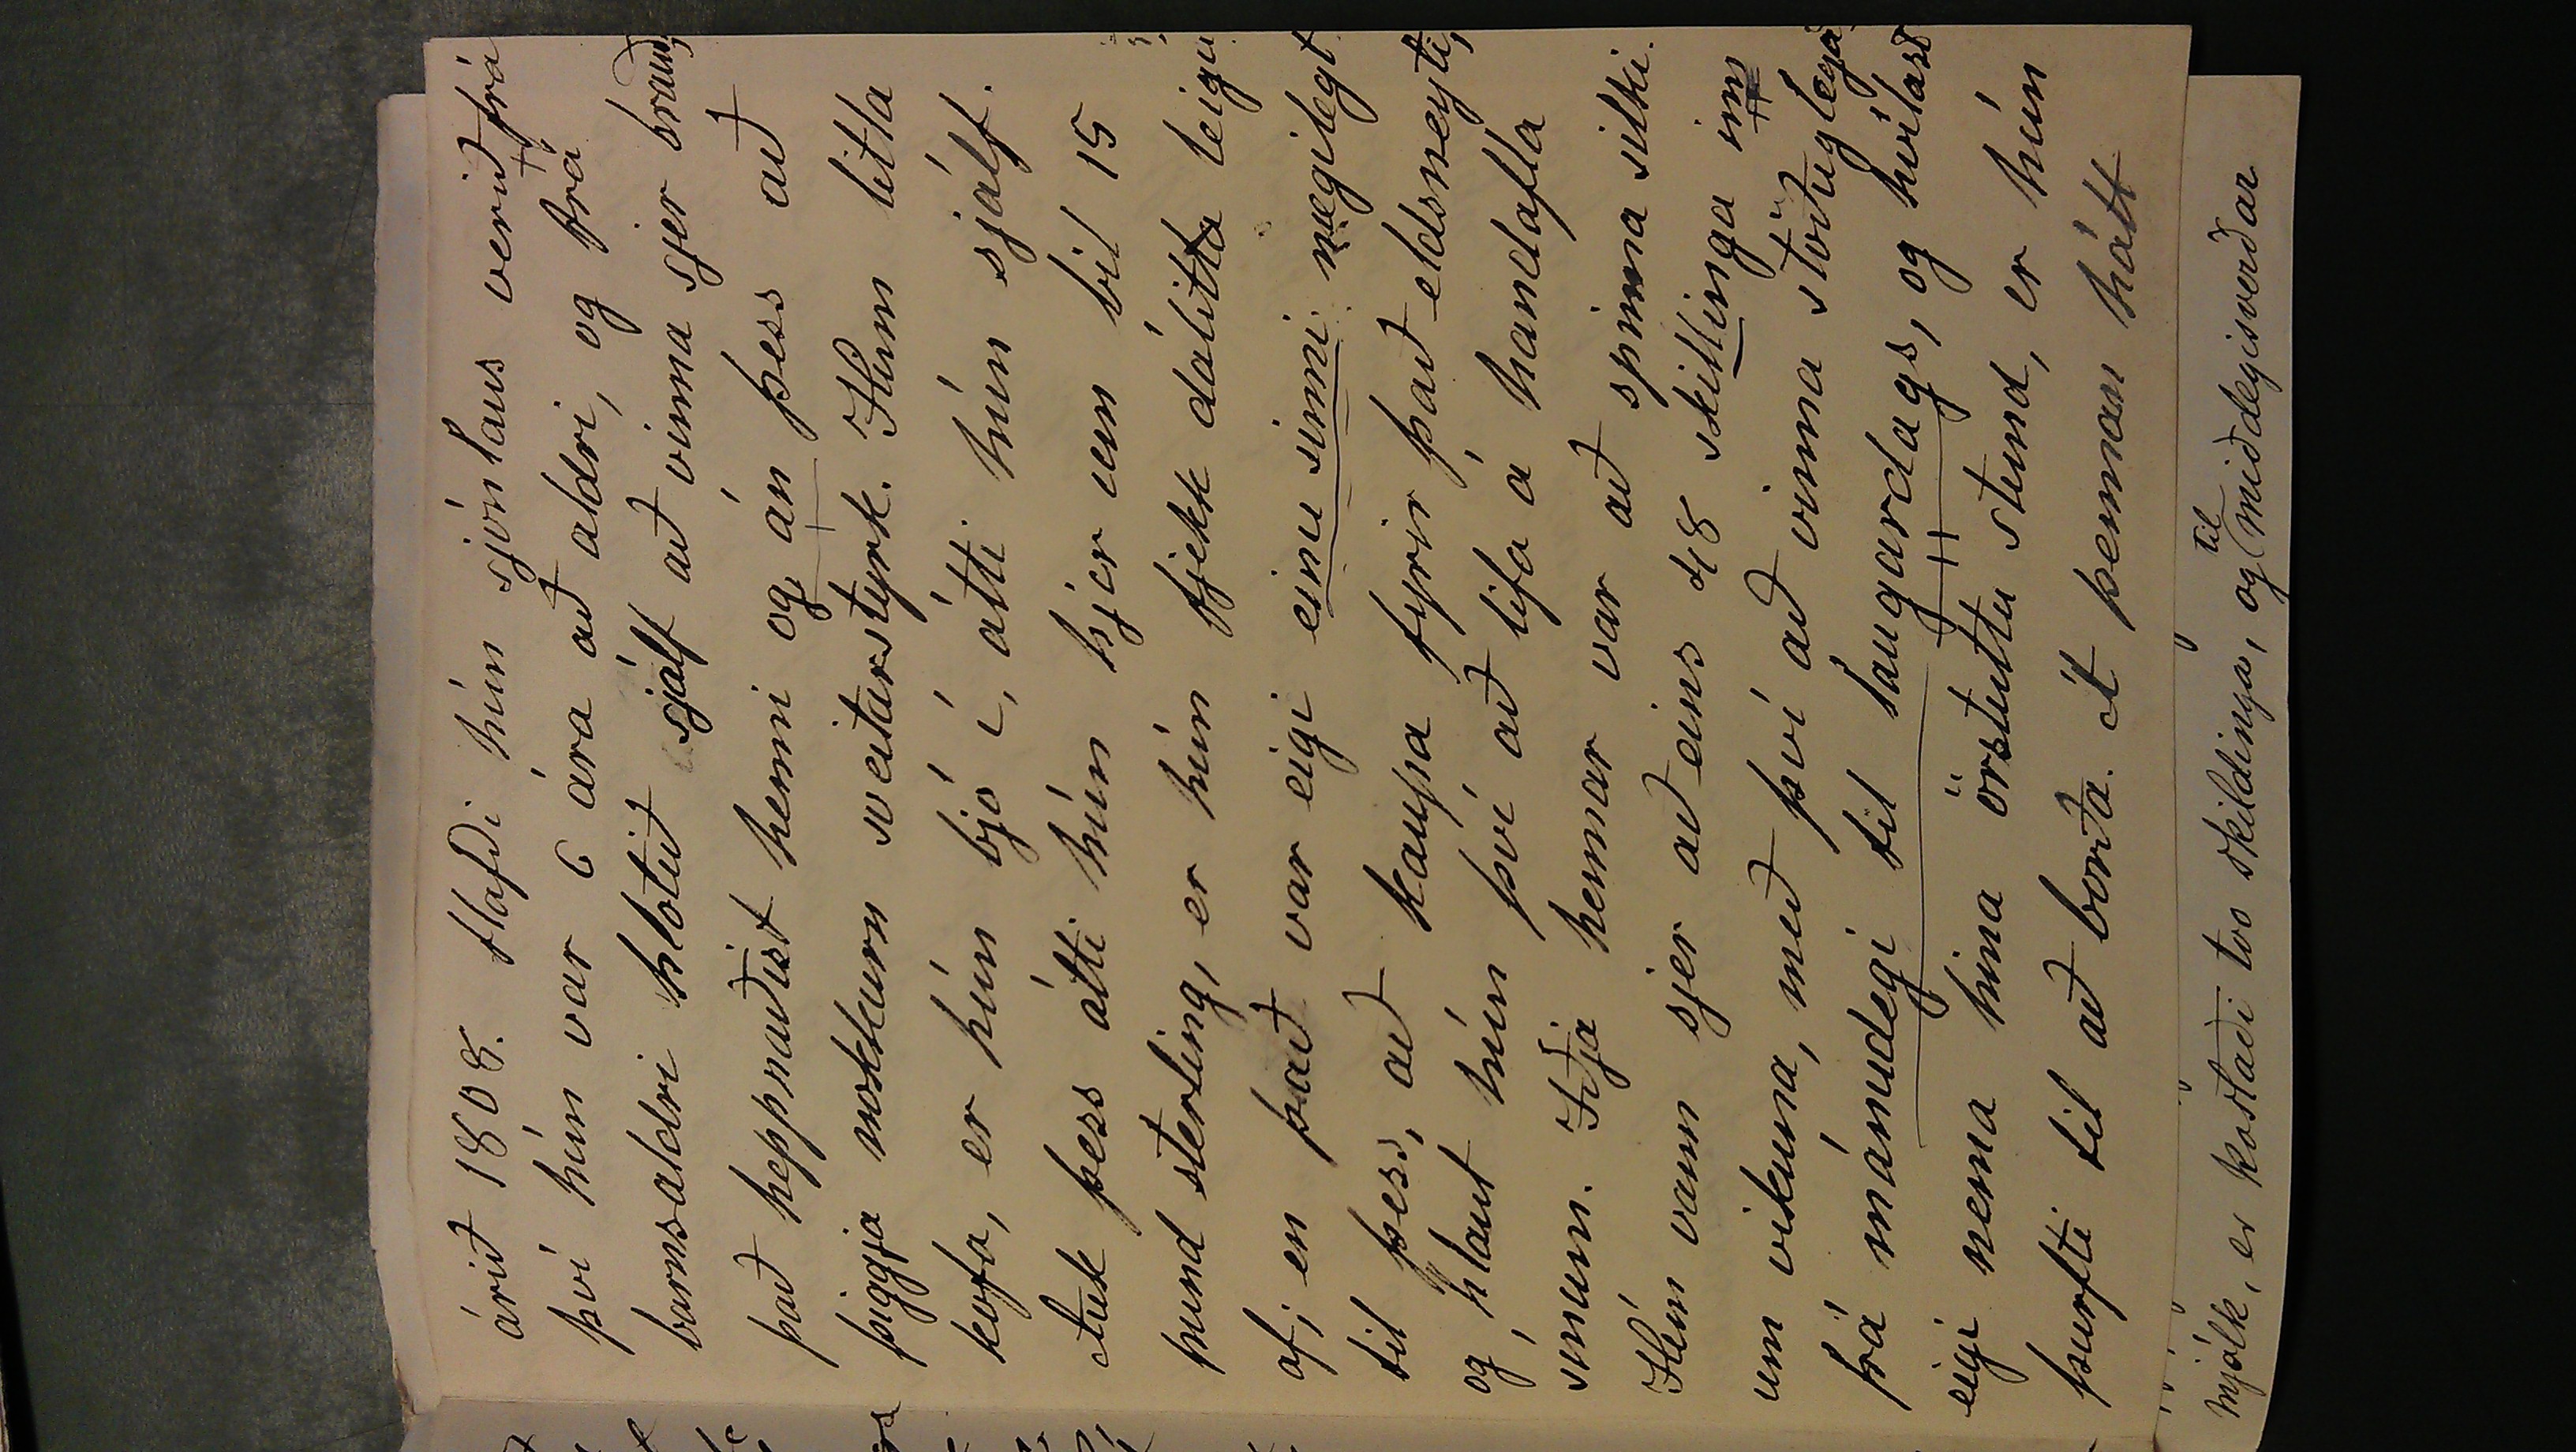 árið 1808. Hafði hún sjónlaus verið frá
því hún var 6 ára að aldri, og frá
barnsaldri hlotið sjálf að vinna sjer brauð;
það heppnaðist henni og án þess að
þiggja nokkurn sveitarstyrk. Hún litla
kofa, er hún bjó í, átti hún sjálf.
Auk þess átti hún hjer um bil 15
pund sterling, er hún fjekk dálitla leigu
af; en það var eigi einu sinni nægilegt
til þess, að kaupa fyrir það eldsneyti,
og hlaut hún því að lifa á handafla
sínum. Iðja hennar var að spinna silki.
Hún vann sjer að eins 48 skillinga inn
um vikuna, með því að vinna stöðuglega
frá mánudegi til laugardags, og hvílast
eigi nema hina örstuttu stund, er hún
þurfti til að borða. Á þennan hátt
mjólk, er kostaði tvo skildinga, og til miðdegisverðar